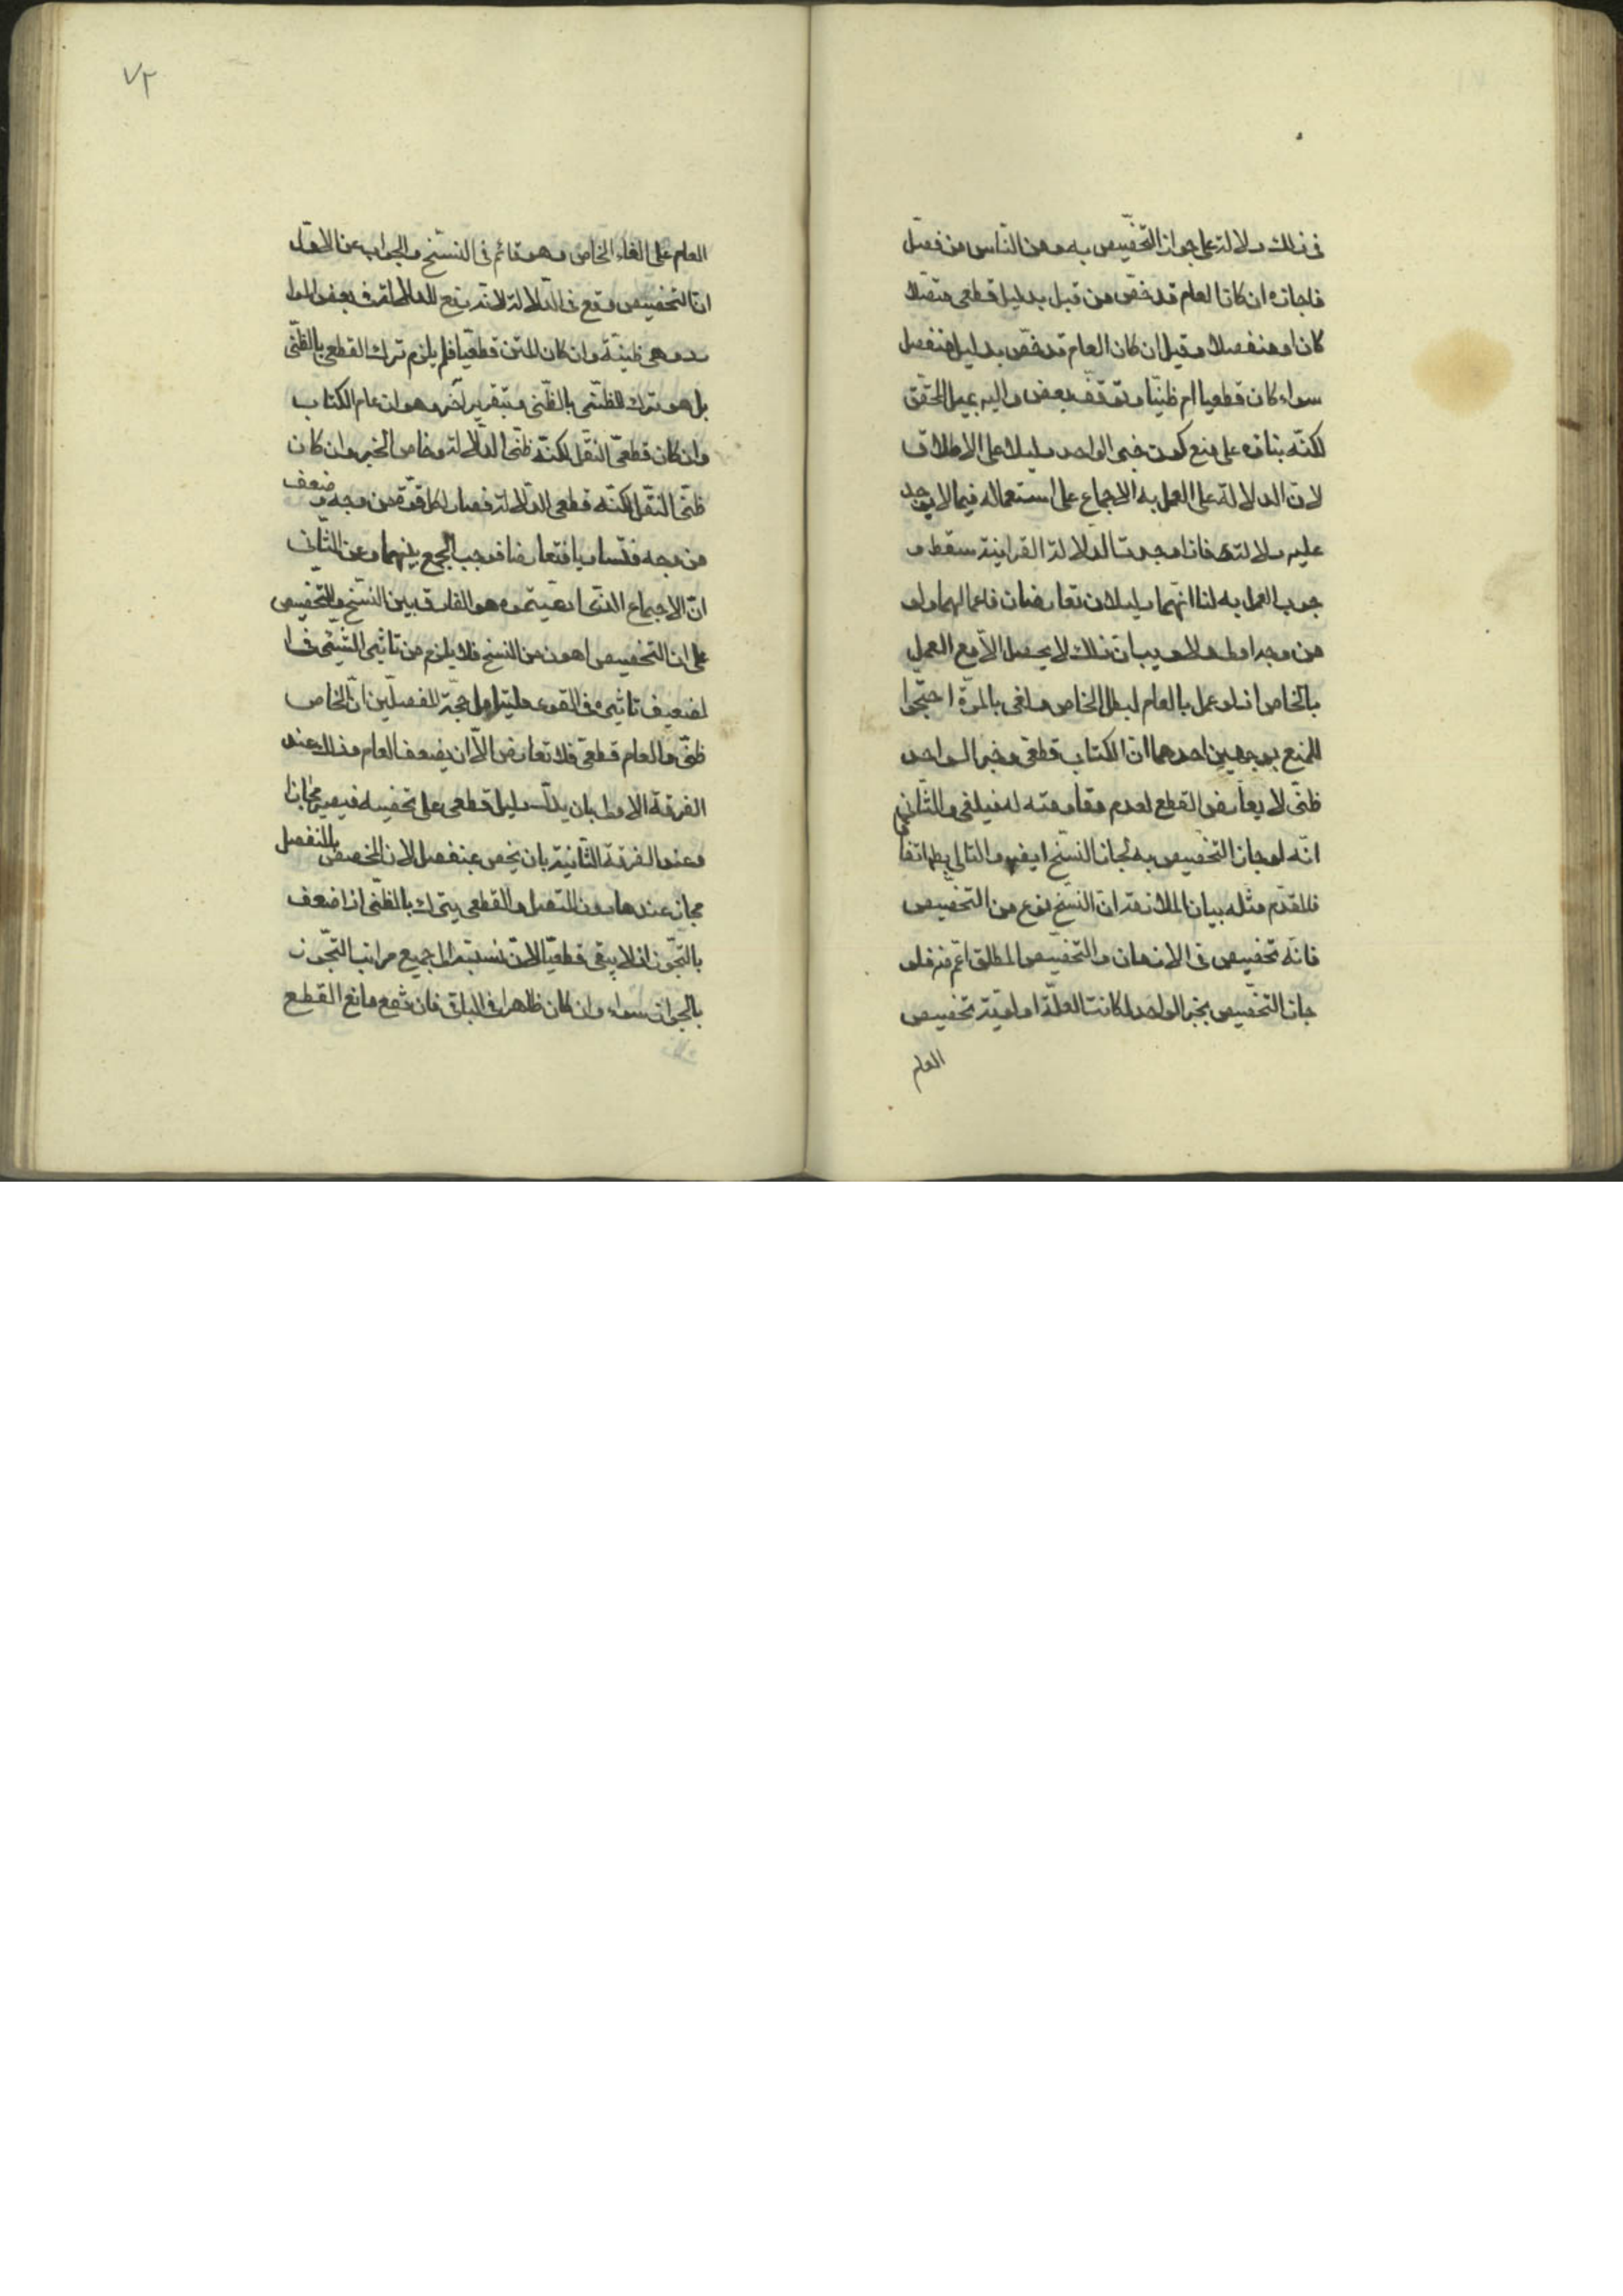 فى ذلك دلالة على جواز التخصيص به ومن الناس من فصل
فاجازه ان كان العام قد خص من قبل بدليل قطعى متصلا
كان او منفصلا وقيل ان كان العام قد خص بدليل منفصل
سواء كان قطعيا ام ظنيا وتوقف بعض واليه يميل المحقق
لكنه بناه على منع كون خبر الواحد دليلا على الاطلاق
لان الدلالة على العمل به الاجماع على استعماله فيما لا يوجد
عليه دلالة فاذا وجدت الدلالة القرانية سقط و
جوب العمل به لنا انهما دليلان تعارضان فاعمالهما ولو
من وجه اولى ولا ريب ان ذلك لا يحصل الا مع العمل
بالخاص اذ لو عمل بالعام لبطل الخاص ولغى بالمرة احتجوا
للمنع بوجهين احدهما ان الكتاب قطعى وخبر الواحد
ظنى لا يعارض القطع لعدم مقاومته له فيلغى والثانى
انه لو جاز التخصيص به لجاز النسخ ايضا والتالى بط اتفاقا
فالمقدم مثله بيان الملازمة ان النسخ نوع من التخصيص
فانه تخصيص فى الازمان والتخصيص المطلق اعم منه فلو
جاز التخصيص بخبر الواحد لكانت العلة اولوية تخصيص
العام
٧٢
العام على الغاء الخاص وهو قائم فى النسخ والجواب عن الاول
ان التخصيص وقع فى الدلالة لانه يدفع للدلالة فى بعض الموا
رد وهى ظنية وان كان المتن قطعيا فلم يلزم ترك القطعى بالظنى
بل هو ترك للظنى بالظنى وبتقرير آخر وهو ان عام الكتاب
وان كان قطعى النقل لكنه ظنى الدلالة وخاص الخبر وان كان
ظنى النقل لكنه قطعى الدلالة فصار لكل قوة من وجه وضعف
من وجه فتساويا فتعارضا فوجب الجمع بينهما وعن الثانى
ان الاجماع الذى ادعيتموه هو الفارق بين النسخ والتخصيص
على ان التخصيص اهون من النسخ فلا يلزم من تاثير الشىء فى ا
لضعيف تاثيره فى القوى حجة المفصلين ان الخاص
ظنى والعام قطعى فلا تعارض الا ان يضعف العام وذلك عند
الفرقة الاولى بان يدل دليل قطعى على تخصيصه فيصير مجازا
وعند الفرقة الثانية بان يخص بمنفصل لان المخصص بالمنفصل
مجاز عندها دون المتصل والقطعى يترك بالظنى اذا ضعف
بالتجوز اذ لا يبقى قطعيا لان نسبته الى جميع مراتب التجوز
بالجواز سواء وان كان ظاهرا فى الباقى فارتفع مانع القطع